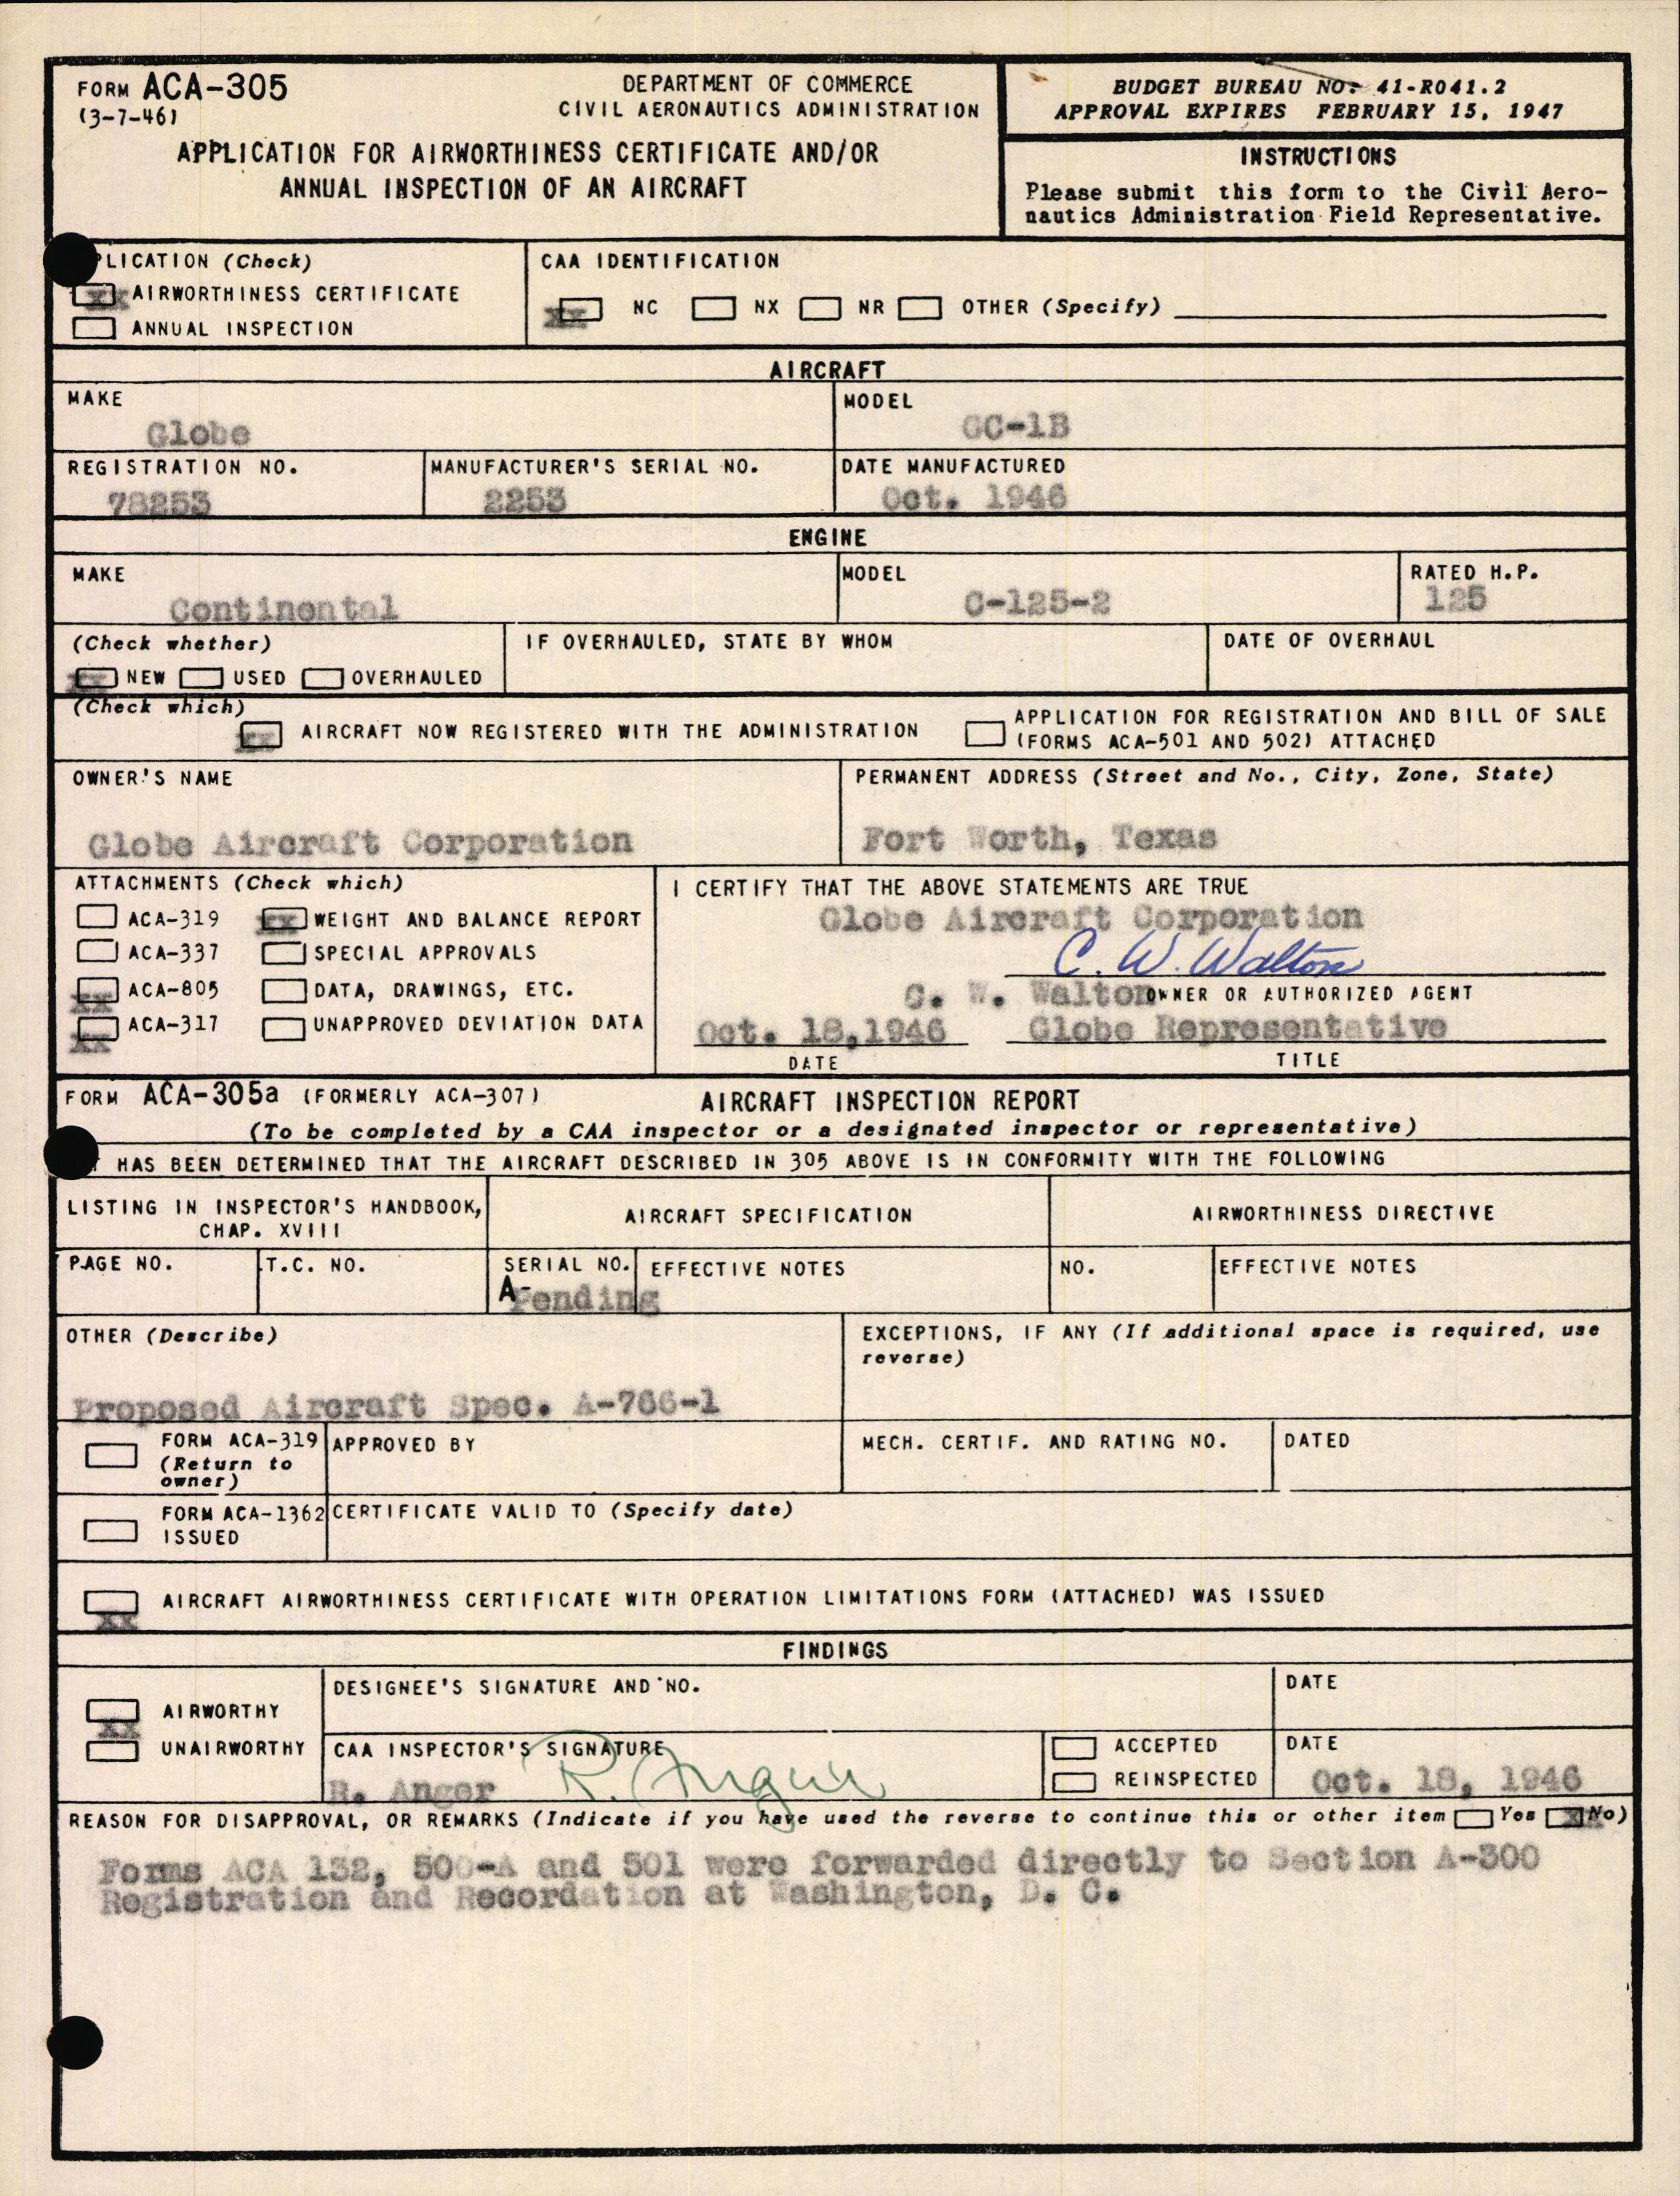 FORM ACA-305
(3-7-46)
DEPARTMENT OF COMMERCE
CIVIL AERONAUTICS ADMINISTRATION
APPLICATION FOR AIRWORTHINESS CERTIFICATE AND/OR
ANNUAL INSPECTION OF AN AIRCRAFT
BUDGET BUREAU NO. 41-R041.2
APPROVAL EXPIRES FEBRUARY 15, 1947
INSTRUCTIONS
Please submit this form to the Civil Aero-
nautics Administration Field Representative.
PLICATION (Check)
xx AIRWORTHINESS CERTIFICATE
ANNUAL INSPECTION
CAA IDENTIFICATION
xx NC NX NR OTHER (Specify)
AIRCRAFT
MAKE
Globe
MODEL
GC-1B
REGISTRATION NO.
78253
MANUFACTURER'S SERIAL NO.
2253
DATE MANUFACTURED
Oct. 1946
ENGINE
MAKE
Continental
MODEL
C-125-2
RATED H.P.
125
(Check whether)
xx NEW USED OVERHAULED
IF OVERHAULED, STATE BY WHOM
DATE OF OVERHAUL
(Check which)
xx AIRCRAFT NOW REGISTERED WITH THE ADMINISTRATION
APPLICATION FOR REGISTRATION AND BILL OF SALE
(FORMS ACA-501 AND 502) ATTACHED
OWNER'S NAME
Globe Aircraft Corporation
PERMANENT ADDRESS (Street and No., City, Zone, State)
Fort Worth, Texas
ATTACHMENTS (Check which)
ACA-319 xx WEIGHT AND BALANCE REPORT
ACA-337 SPECIAL APPROVALS
xx ACA-805 DATA, DRAWINGS, ETC.
xx ACA-317 UNAPPROVED DEVIATION DATA
I CERTIFY THAT THE ABOVE STATEMENTS ARE TRUE
Globe Aircraft Corporation
C. W. Walton
C. W. Walton OWNER OR AUTHORIZED AGENT
Oct. 18,1946 Globe Representative
DATE TITLE
FORM ACA-305a (FORMERLY ACA-307) AIRCRAFT INSPECTION REPORT
(To be completed by a CAA inspector or a designated inspector or representative)
T HAS BEEN DETERMINED THAT THE AIRCRAFT DESCRIBED IN 305 ABOVE IS IN CONFORMITY WITH THE FOLLOWING
LISTING IN INSPECTOR'S HANDBOOK,
CHAP. XVIII
AIRCRAFT SPECIFICATION
AIRWORTHINESS DIRECTIVE
PAGE NO.
T.C. NO.
SERIAL NO.
A-Pending
EFFECTIVE NOTES
NO.
EFFECTIVE NOTES
OTHER (Describe)
Proposed Aircraft Spec. A-766-1
EXCEPTIONS, IF ANY (If additional space is required, use
reverse)
FORM ACA-319
(Return to
owner)
APPROVED BY
MECH. CERTIF. AND RATING NO.
DATED
FORM ACA-1362
ISSUED
CERTIFICATE VALID TO (Specify date)
xx AIRCRAFT AIRWORTHINESS CERTIFICATE WITH OPERATION LIMITATIONS FORM (ATTACHED) WAS ISSUED
FINDINGS
xx AIRWORTHY
UNAIRWORTHY
DESIGNEE'S SIGNATURE AND NO.
DATE
CAA INSPECTOR'S SIGNATURE
R. Anger R. Anger
ACCEPTED
REINSPECTED
DATE
Oct. 18, 1946
REASON FOR DISAPPROVAL, OR REMARKS (Indicate if you have used the reverse to continue this or other item Yes x No)
Forms ACA 132, 500-A and 501 were forwarded directly to Section A-300
Registration and Recordation at Washington, D. C.